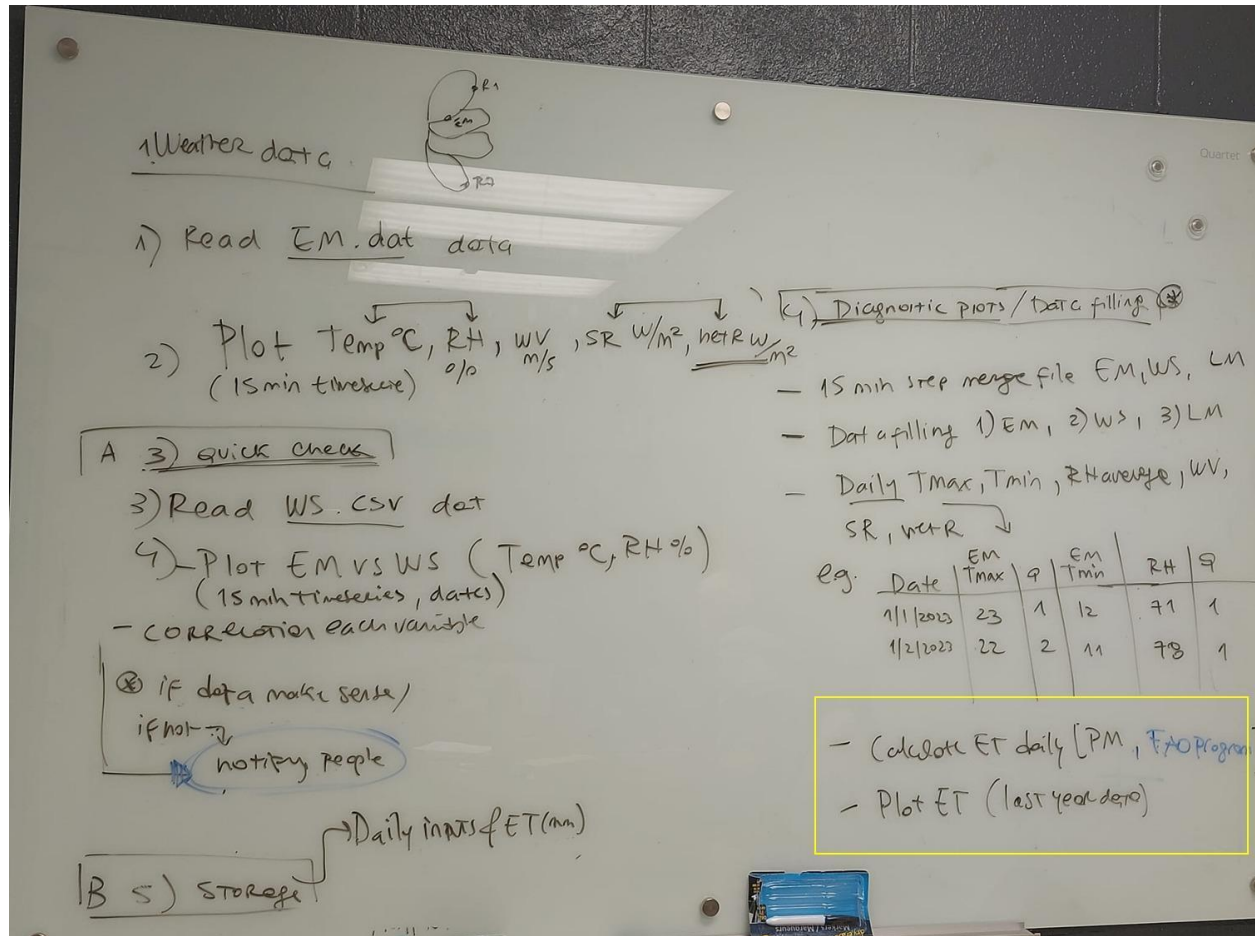 R1
EM
R2
1. Weather data
1) Read EM.dat data
2) Plot Temp °C, RH %, WV m/s, SR W/m², netR W/m²
(15min timeserie)
A 3) Quick check
3) Read WS.csv dat
4) - Plot EM vs WS (Temp °C, RH %)
(15min timeseries, dates)
- correlation each variable
* if data make sense/
if not →
notifny people
B 5) STORAGE
→ Daily inputs & ET (mm)
4) Diagnostic plots / Data filling *
- 15 min step merge file EM, WS, LM
- Data filling 1) EM, 2) WS, 3) LM
- Daily Tmax, Tmin, RH average, WV,
SR, netR
e.g. Date | EM Tmax | q | EM Tmin | RH | q
1/1/2023 23 1 12 71 1
1/2/2023 22 2 11 78 1
- Calculate ET daily [PM, FAO Program
- Plot ET (last year data)
Quartet
Markers / Marqueurs